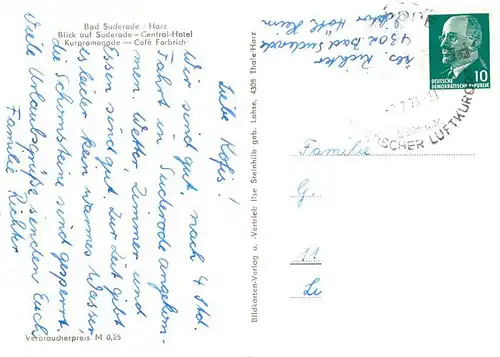 Bad Suderode / Harz
Blick auf Suderode – Central-Hotel
Kurpromenade – Café Forbrich
Liebe Kofis!
Wir sind gut nach 4 Std.
Fahrt in Suderode angekom-
men. Wetter, Zimmer und
Essen sind gut. Zur Zeit gibt
es leider kein warmes Wasser
die Schornsteine sind gesperrt.
Viele Urlaubsgrüße senden Euch
Familie Richter
Verbraucherpreis M 0,25
Bildkarten-Verlag u. -Vertrieb Ilse Steinhlib geb. Lohse, 4308 Thale/Harz
Abs. Richter
4302 Bad Suderode
Heim
DEUTSCHE
DEMOKRATISCHE REPUBLIK
10
7.73
SCHER LUFTKURO
Familie
G.
11
Le